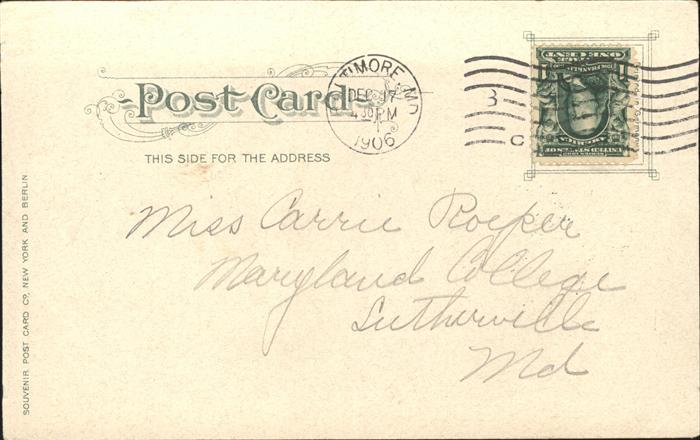 Post Card
BALTIMORE, MD.
DEC 17
4 30 PM
1906
3
C
ONE CENT
FRANKLIN
1 1
UNITED STATES OF
AMERICA
THIS SIDE FOR THE ADDRESS
Miss Carrie Roeper
Maryland College
Lutherville
Md
SOUVENIR POST CARD CO., NEW YORK AND BERLIN